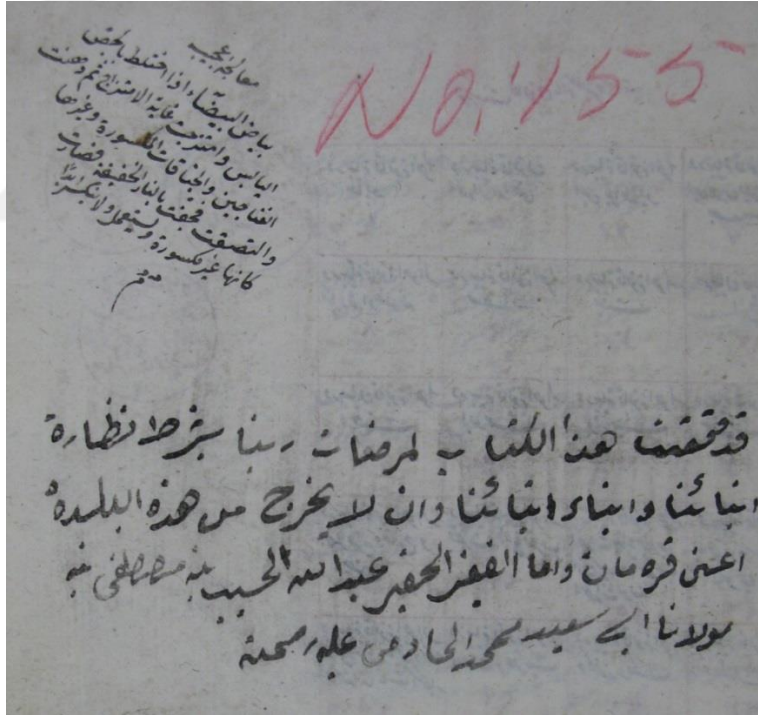 معالجة عجيب
بياض البيضاء اذا اختلط بالجص
اليابس وامتزجت غاية الامتزاج ثم دهنت
الفناجين والجناقات المكسورة وغيرها
والتصقت فجففت بالنار الخفيفة فصارت
كانها غير مكسورة وليستعمل ولا ينكسر ابدا
No, 455
قد وقفت هذا الكتاب لمرضات ربنا بشرط نظارة
ابنائنا وابناء ابنائنا وان لا يخرج من هذه البلدة
اعنى قره مان وانا الفقير الحقير عبد الله الحسيب بن مصطفى بن
مولانا ابى سعيد محمد الخادمى عليه رحمة